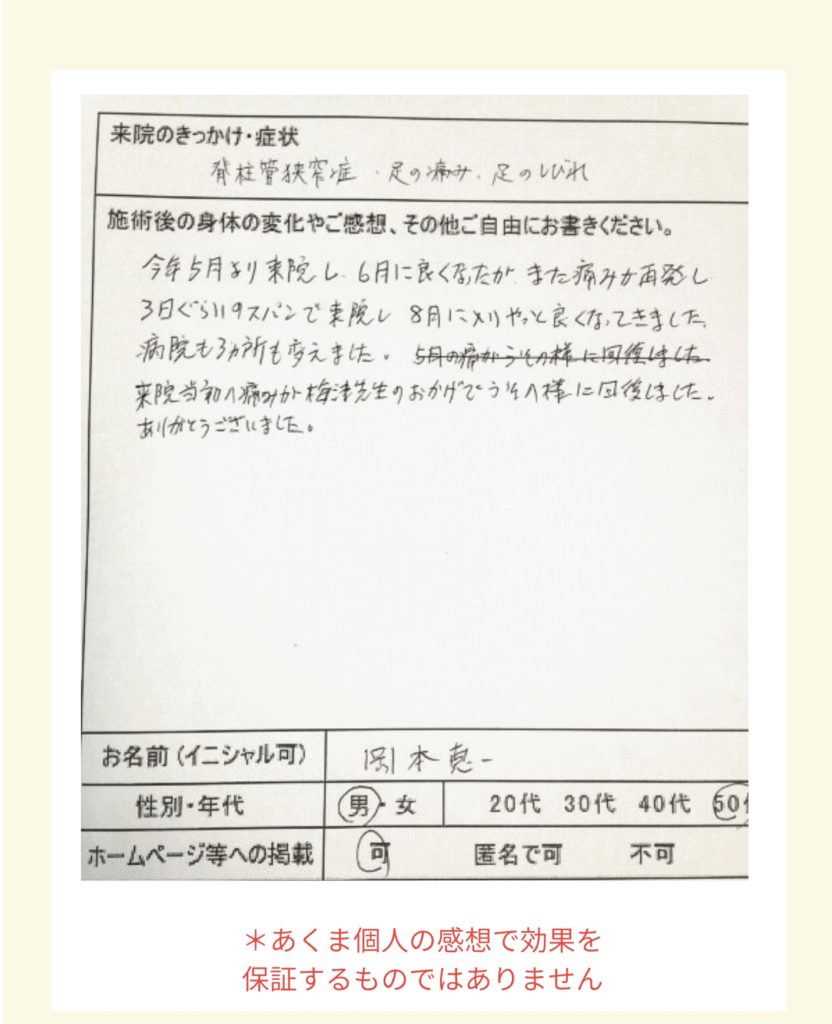 来院のきっかけ・症状
脊柱管狭窄症・足の痛み・足のしびれ
施術後の身体の変化やご感想、その他ご自由にお書きください。
今年5月より来院し、6月に良くなったが、また痛みが再発し
3日ぐらいのスパンで来院し 8月に入りやっと良くなってきました。
病院も3ヵ所も変えました。 5月の痛がうその様に回復しました.
来院当初の痛みが梅津先生のおかげでうその様に回復しました。
ありがとうございました。
お名前(イニシャル可) 岡本恵一
性別・年代 男・女 20代 30代 40代 50代
ホームページ等への掲載 可 匿名で可 不可
＊あくま個人の感想で効果を
保証するものではありません